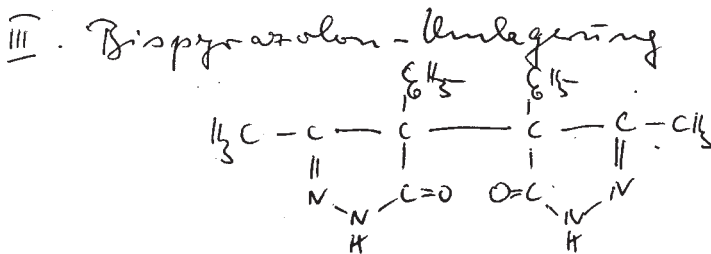 III. Bispyrazolon-Umlagerung
C₆H₅ C₆H₅
H₃C - C - C - C - C - CH₃
N C=O O=C N
N N
H H